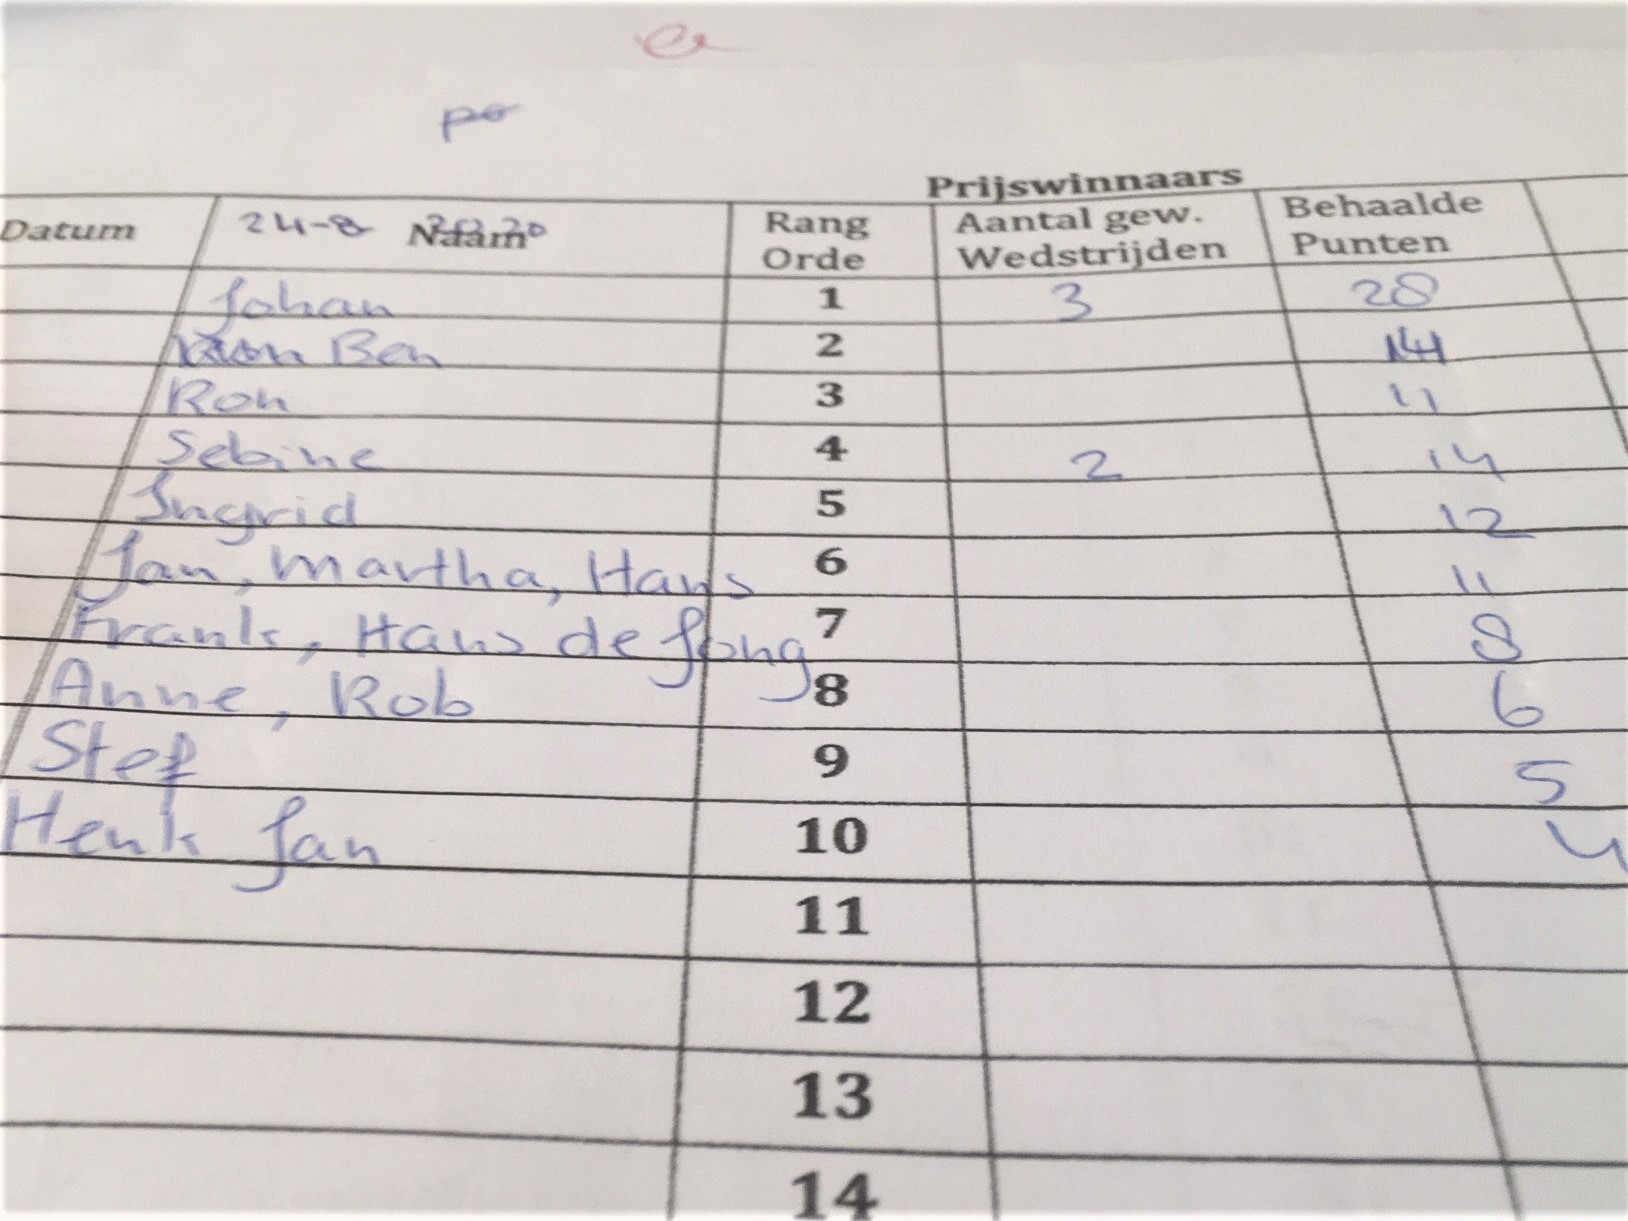 po
Prijswinnaars
Datum 24-8 Naam 2020 Rang Orde Aantal gew. Wedstrijden Behaalde Punten
Johan 1 3 28
Ben 2 14
Ron 3 11
Sebine 4 2 14
Ingrid 5 12
Jan, Martha, Hans 6 11
Frank, Hans de Jong 7 8
Anne, Rob 8 6
Stef 9 5
Henk Jan 10 4
11
12
13
14